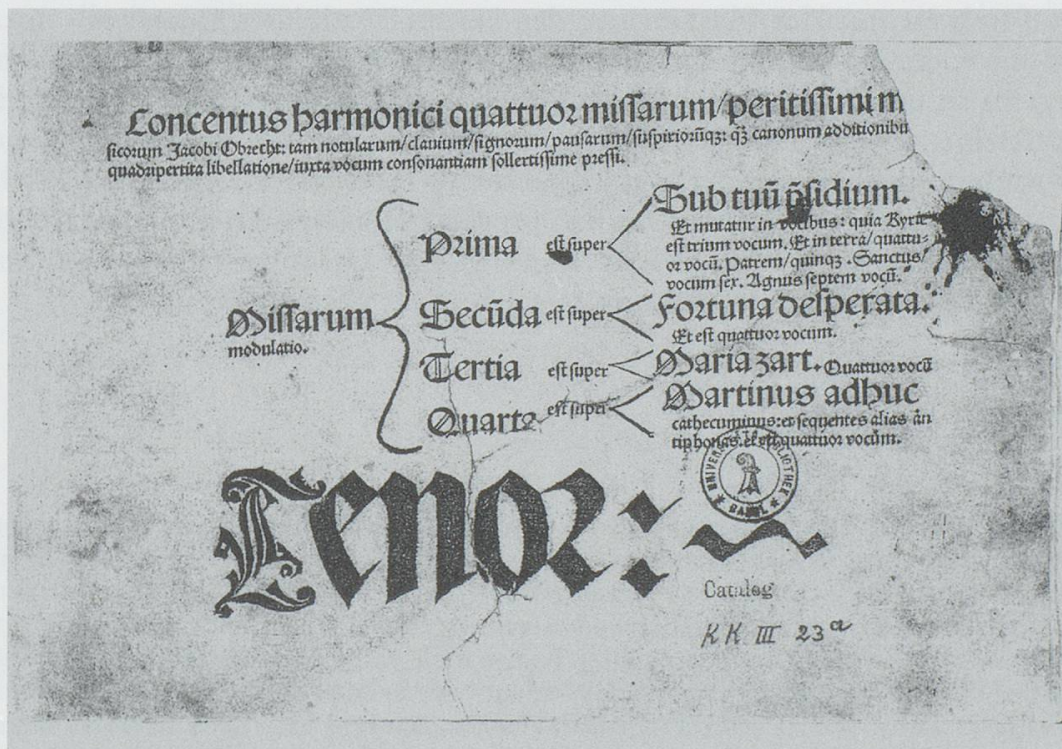 Concentus harmonici quattuor missarum/peritissimi m
sicorum Jacobi Obrecht: tam notularum/clavium/signorum/pausarum/suspiriorūqꝫ: qꝫ canonum additionibu
quadripertita libellatione/iuxta vocum consonantiam sollertissime pressi.
Missarum
modulatio.
Prima est super Sub tuū p̄sidium.
Et mutatur in vocibus: quia Kyrie
est trium vocum. Et in terra/quattu-
or vocū. Patrem/quinqꝫ. Sanctus/
vocum sex. Agnus septem vocū.
Secūda est super Fortuna desperata.
Et est quattuor vocum.
Tertia est super Maria zart. Quattuor vocū
Quarta est super Martinus adhuc
cathecuminus: et sequentes alias an
tiphonas. et est quattuor vocum.
Tenor:
UNIVERSITÄTS BIBLIOTHEK
BASEL
Catalog
KK III 23a